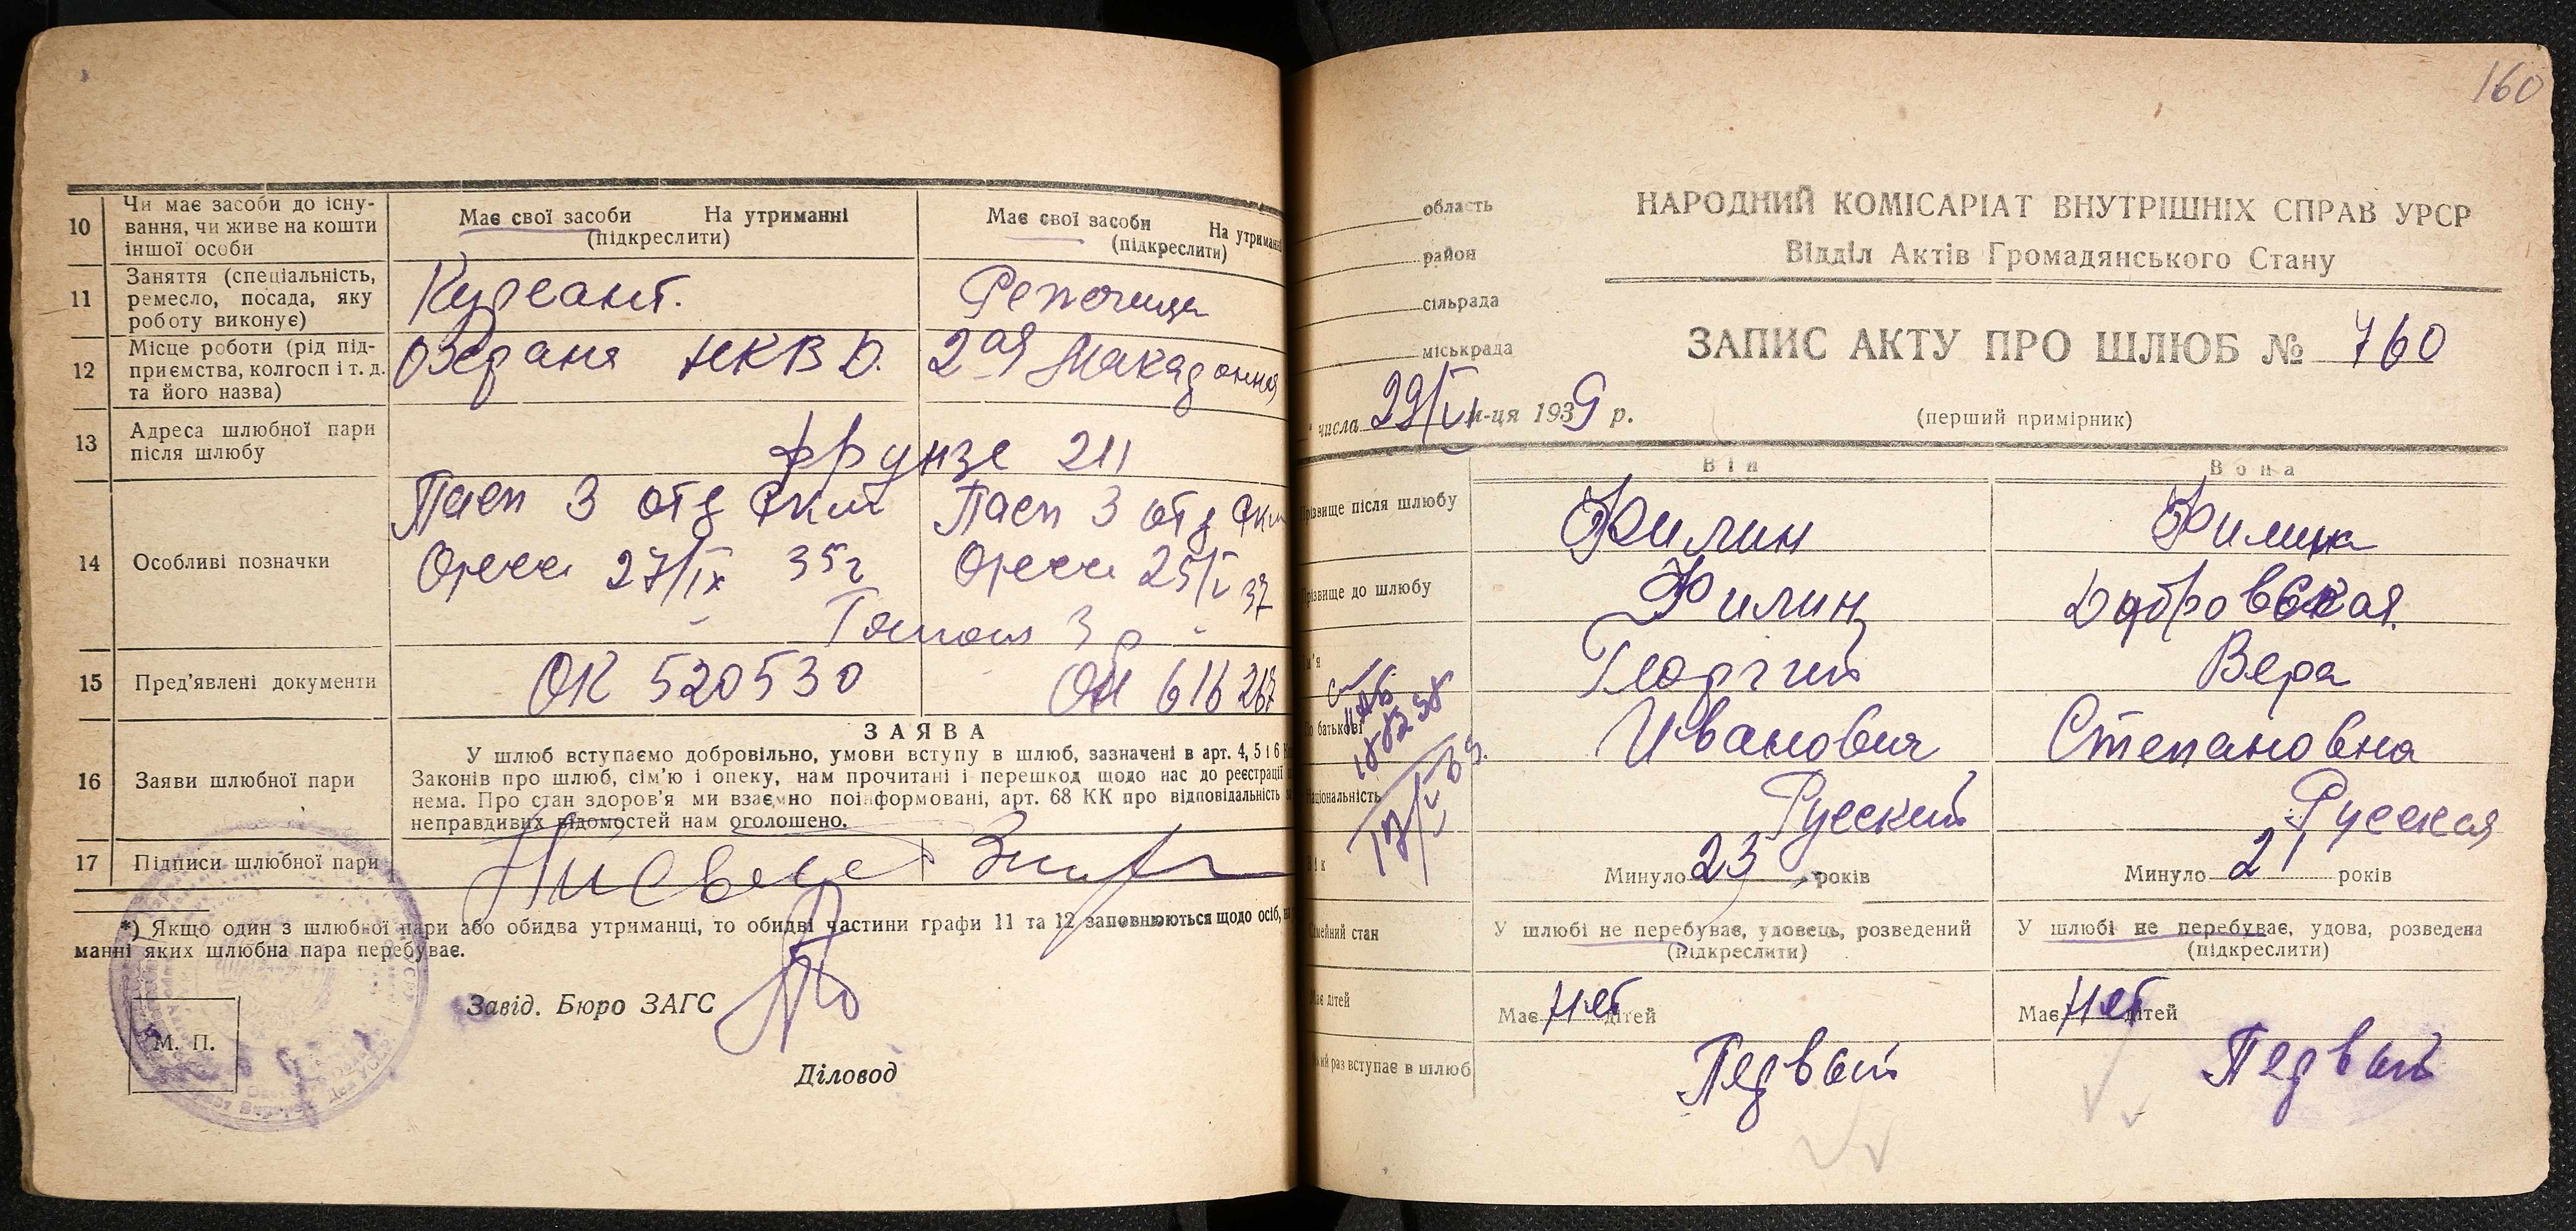 10
Чи має засоби до існу-
вання, чи живе на кошти
іншої особи
Має свої засоби На утриманні
(підкреслити)
Має свої засоби На утриманні
(підкреслити)
11
Заняття (спеціальність,
ремесло, посада, яку
роботу виконує)
Курсант.
12
Місце роботи (рід під-
приємства, колгосп і т. д.
та його назва)
Охрана НКВД.
2ая
13
Адреса шлюбної пари
після шлюбу
Фрунзе 211
14
Особливі позначки
Пасп 3 отд
Одесса 27/IX 35г
Пасп 3 отд
Одесса 25/V 37
15
Пред'явлені документи
ОК 520530
616267
16
Заяви шлюбної пари
ЗАЯВА
У шлюб вступаємо добровільно, умови вступу в шлюб, зазначені в арт. 4, 5 і 6
Законів про шлюб, сім'ю і опеку, нам прочитані і перешкод щодо нас до реєстрації
нема. Про стан здоров'я ми взаємно поінформовані, арт. 68 КК про відповідальність
неправдивих відомостей нам оголошено.
17
Підписи шлюбної пари
*) Якщо один з шлюбної пари або обидва утриманці, то обидві частини графи 11 та 12 заповнюються щодо осіб,
манні яких шлюбна пара перебуває.
Завід. Бюро ЗАГС
М. П.
Діловод
160
область
район
сільрада
міськрада
НАРОДНИЙ КОМІСАРІАТ ВНУТРІШНІХ СПРАВ УРСР
Відділ Актів Громадянського Стану
ЗАПИС АКТУ ПРО ШЛЮБ № 760
(перший примірник)
числа 29/VI м-ця 1939 р.
Він
Вона
Прізвище після шлюбу
Филин
Филина
Прізвище до шлюбу
Филин
Домбровская
Ім'я
Георгий
Вера
По батькові
Иванович
Степановна
Національність
Русский
Русская
Вік
Минуло 23 років
Минуло 21 років
Сімейний стан
У шлюбі не перебуває, удовець, розведений
(підкреслити)
У шлюбі не перебуває, удова, розведена
(підкреслити)
Має дітей
Має нет дітей
Має нет дітей
Який раз вступає в шлюб
Первый
Первый